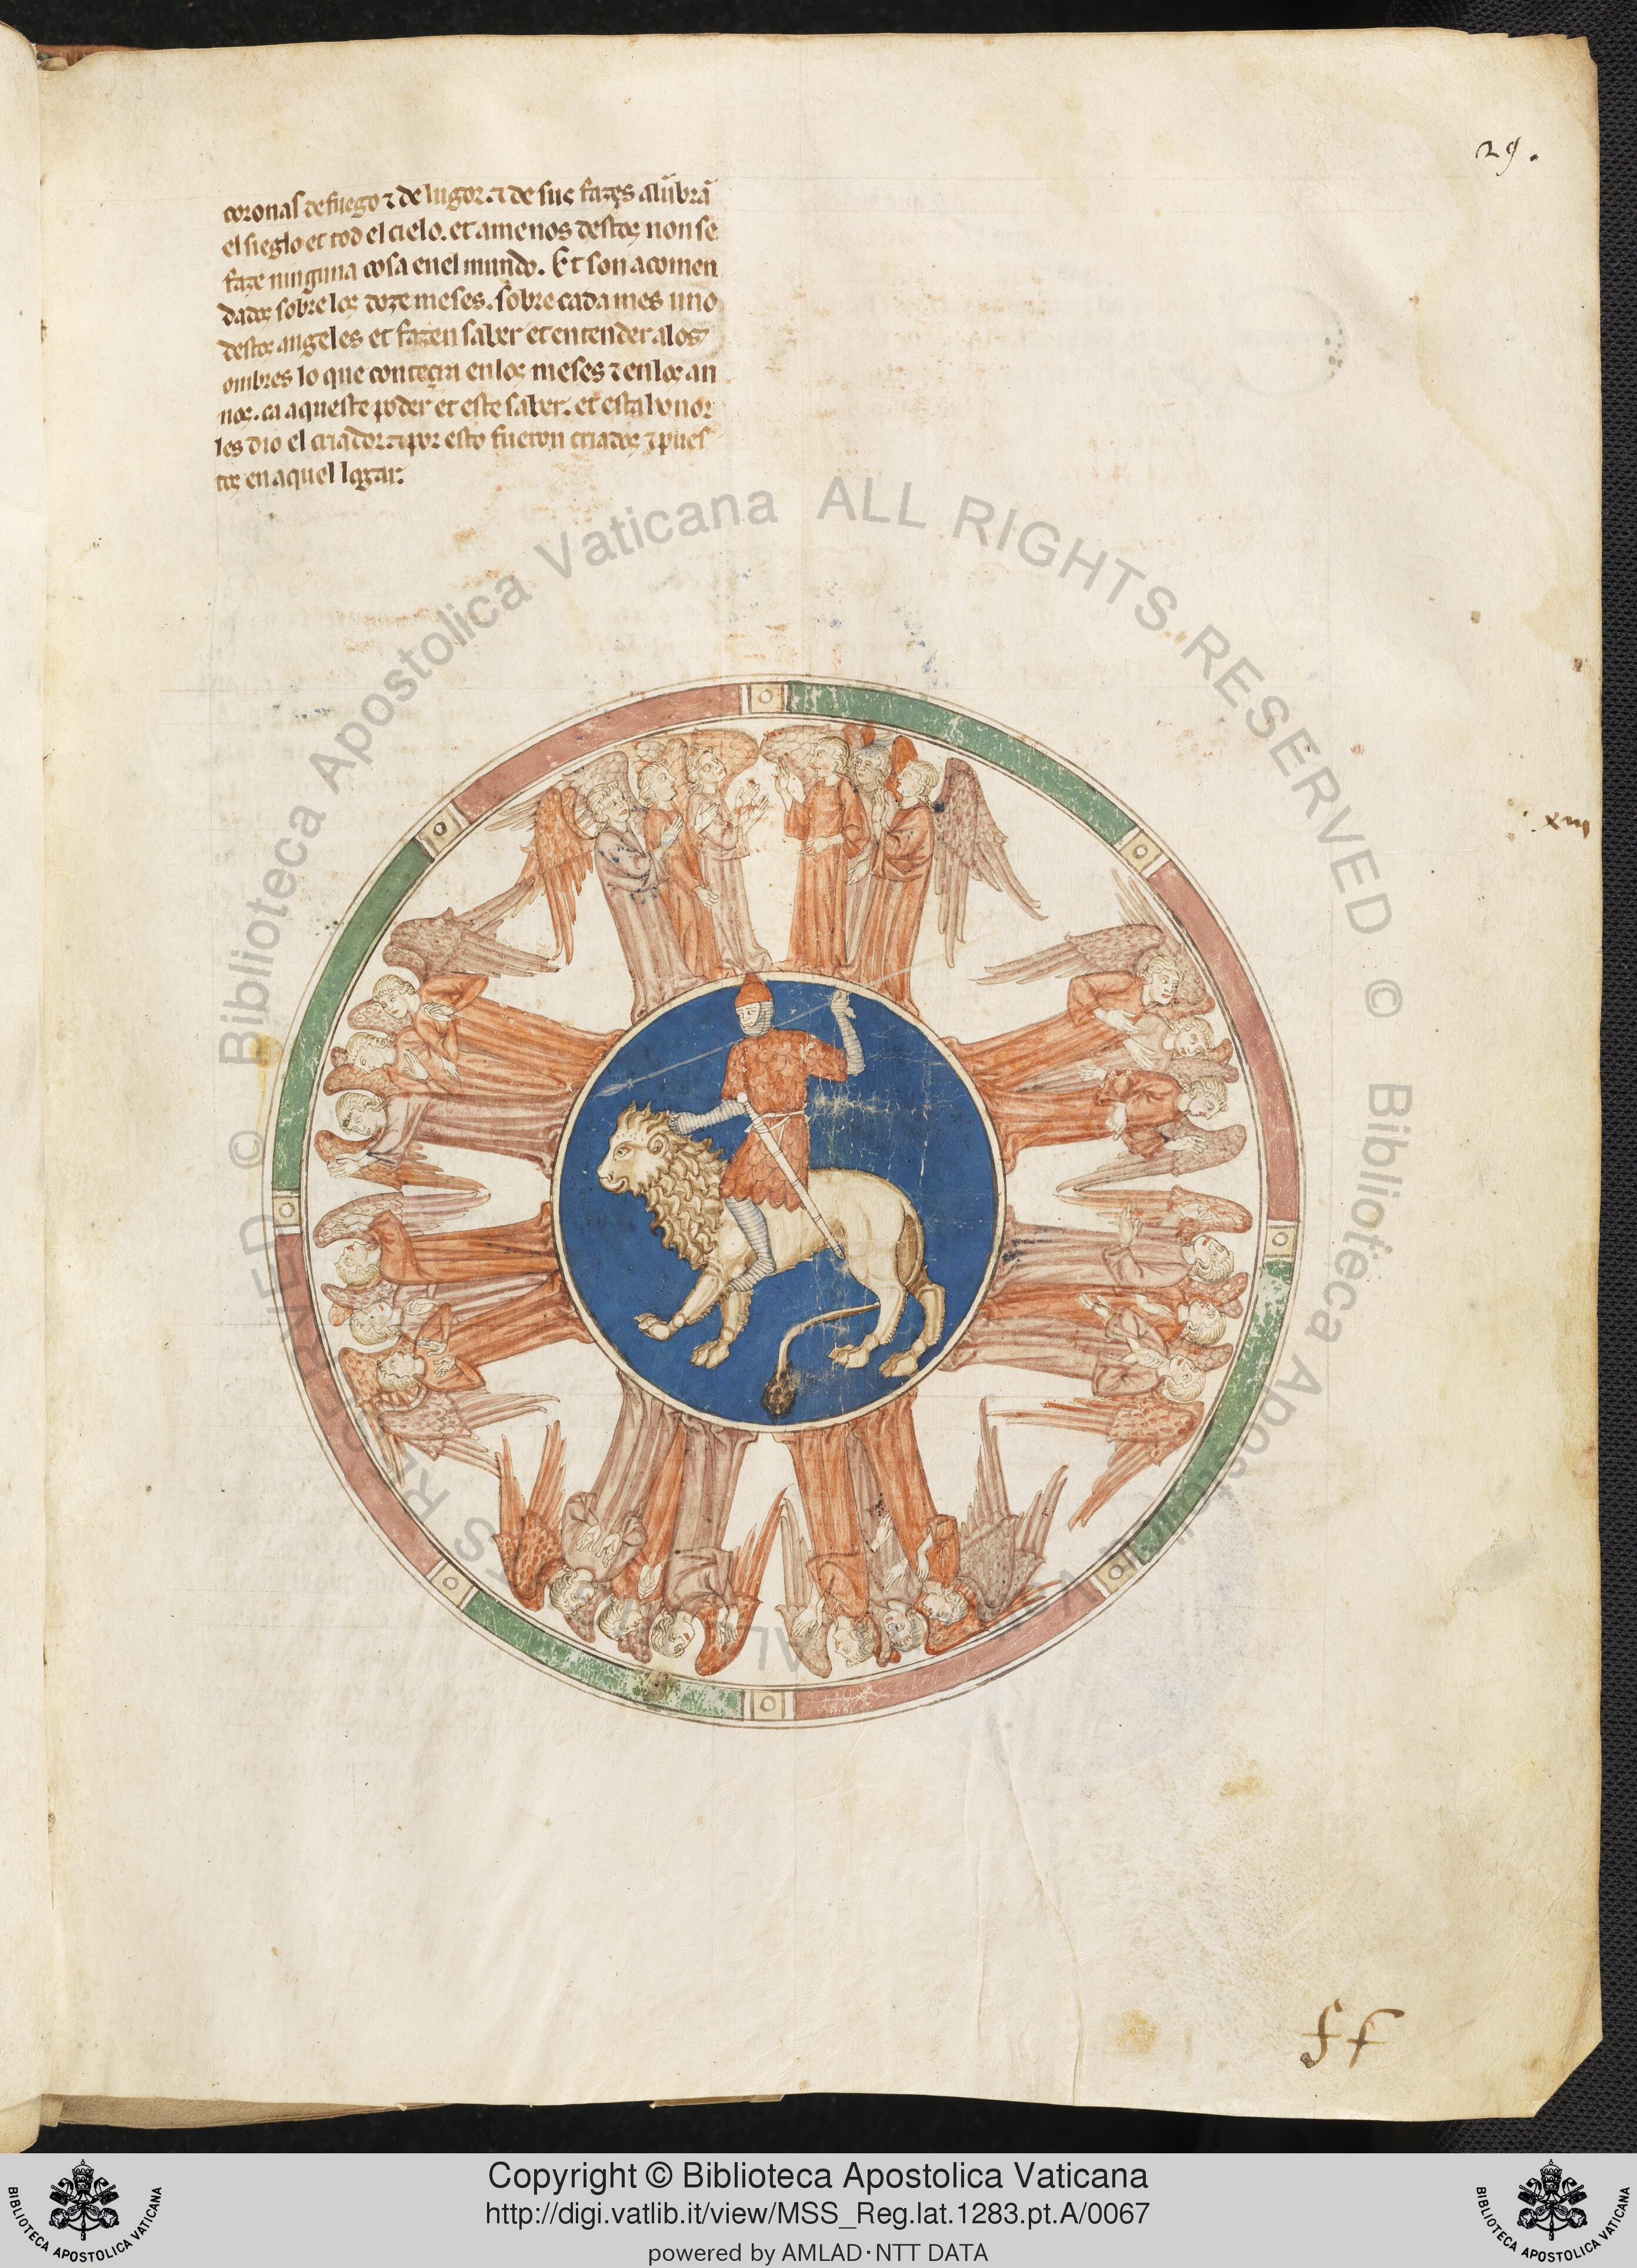 29.
coronas de fuego ⁊ de lugor. ⁊ de sus fazes alũbrã
el sieglo et tod el cielo. et amenos destos non se
faze ninguna cosa enel mundo. Et son acomen
dados sobre los doze meses. sobre cada mes uno
destos angeles et fazen saber et entender alos
ombres lo que conteçra en los meses ⁊ en los an
nos. ca aqueste poder et este saber. et esta honor
les dio el criador. ⁊ por esto fueron criados ⁊ pues
tos en aquel logar.
xiii
ff
© Biblioteca Apostolica Vaticana ALL RIGHTS RESERVED © Biblioteca Apostolica Vaticana ALL RIGHTS RESERVED
Copyright © Biblioteca Apostolica Vaticana
http://digi.vatlib.it/view/MSS_Reg.lat.1283.pt.A/0067
powered by AMLAD·NTT DATA
BIBLIOTECA APOSTOLICA VATICANA
BIBLIOTECA APOSTOLICA VATICANA